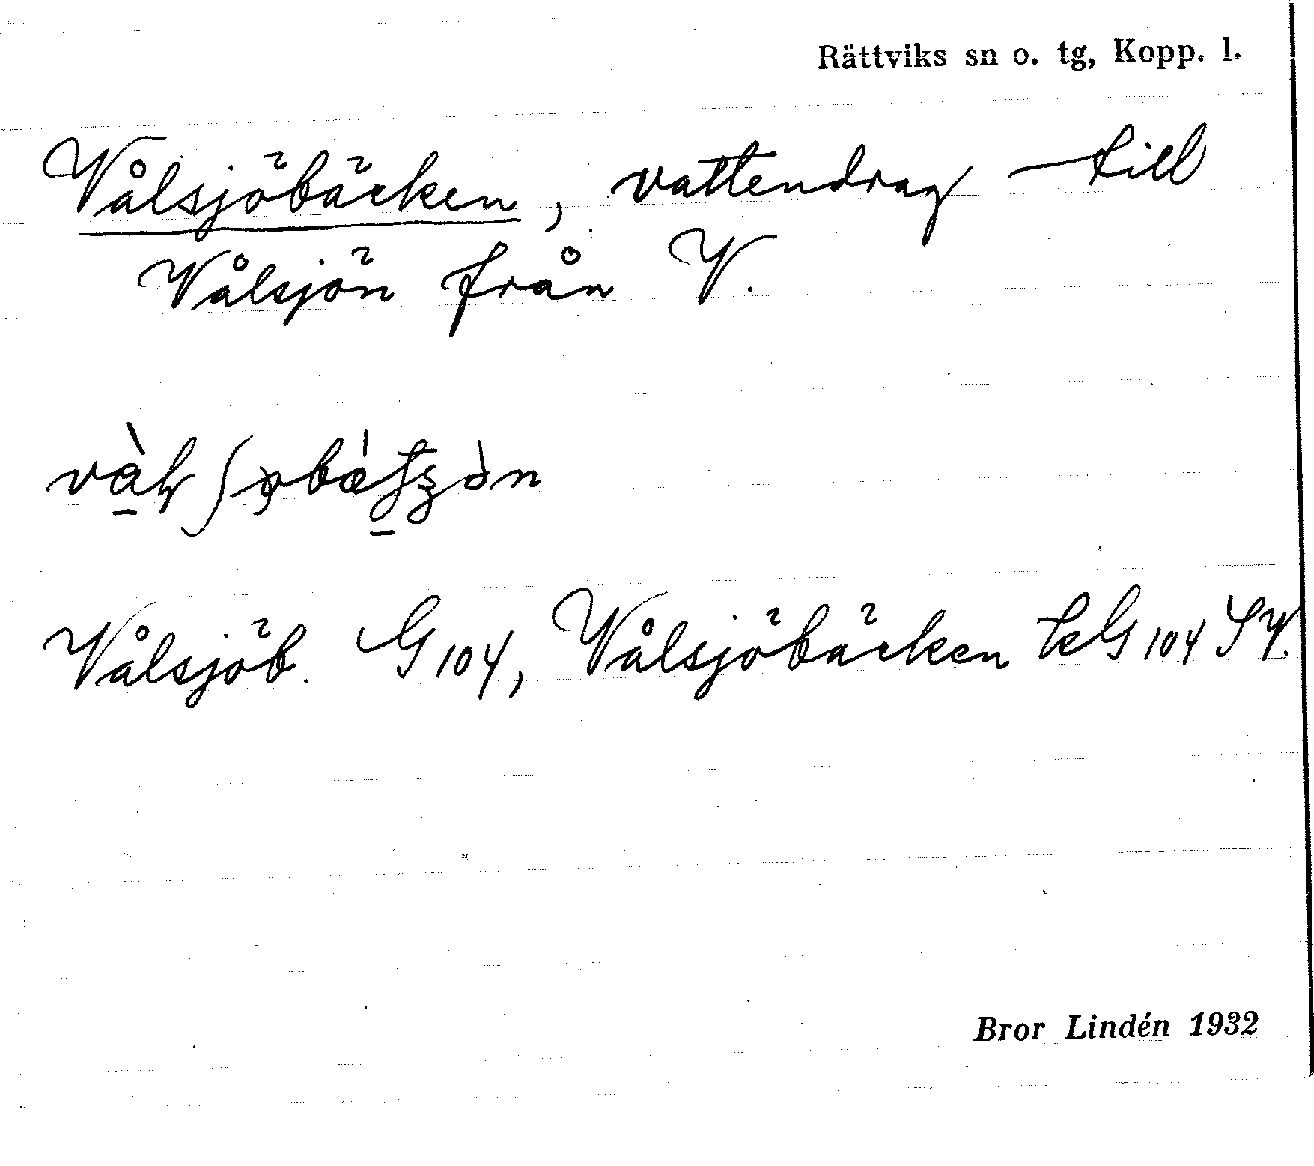 Rättviks sn o. tg, Kopp. l.
Vålsjöbäcken, vattendrag till
Vålsjön från V.
Vålsjöb. G 104, Vålsjöbäcken kG 104 SV.
Bror Lindén 1932